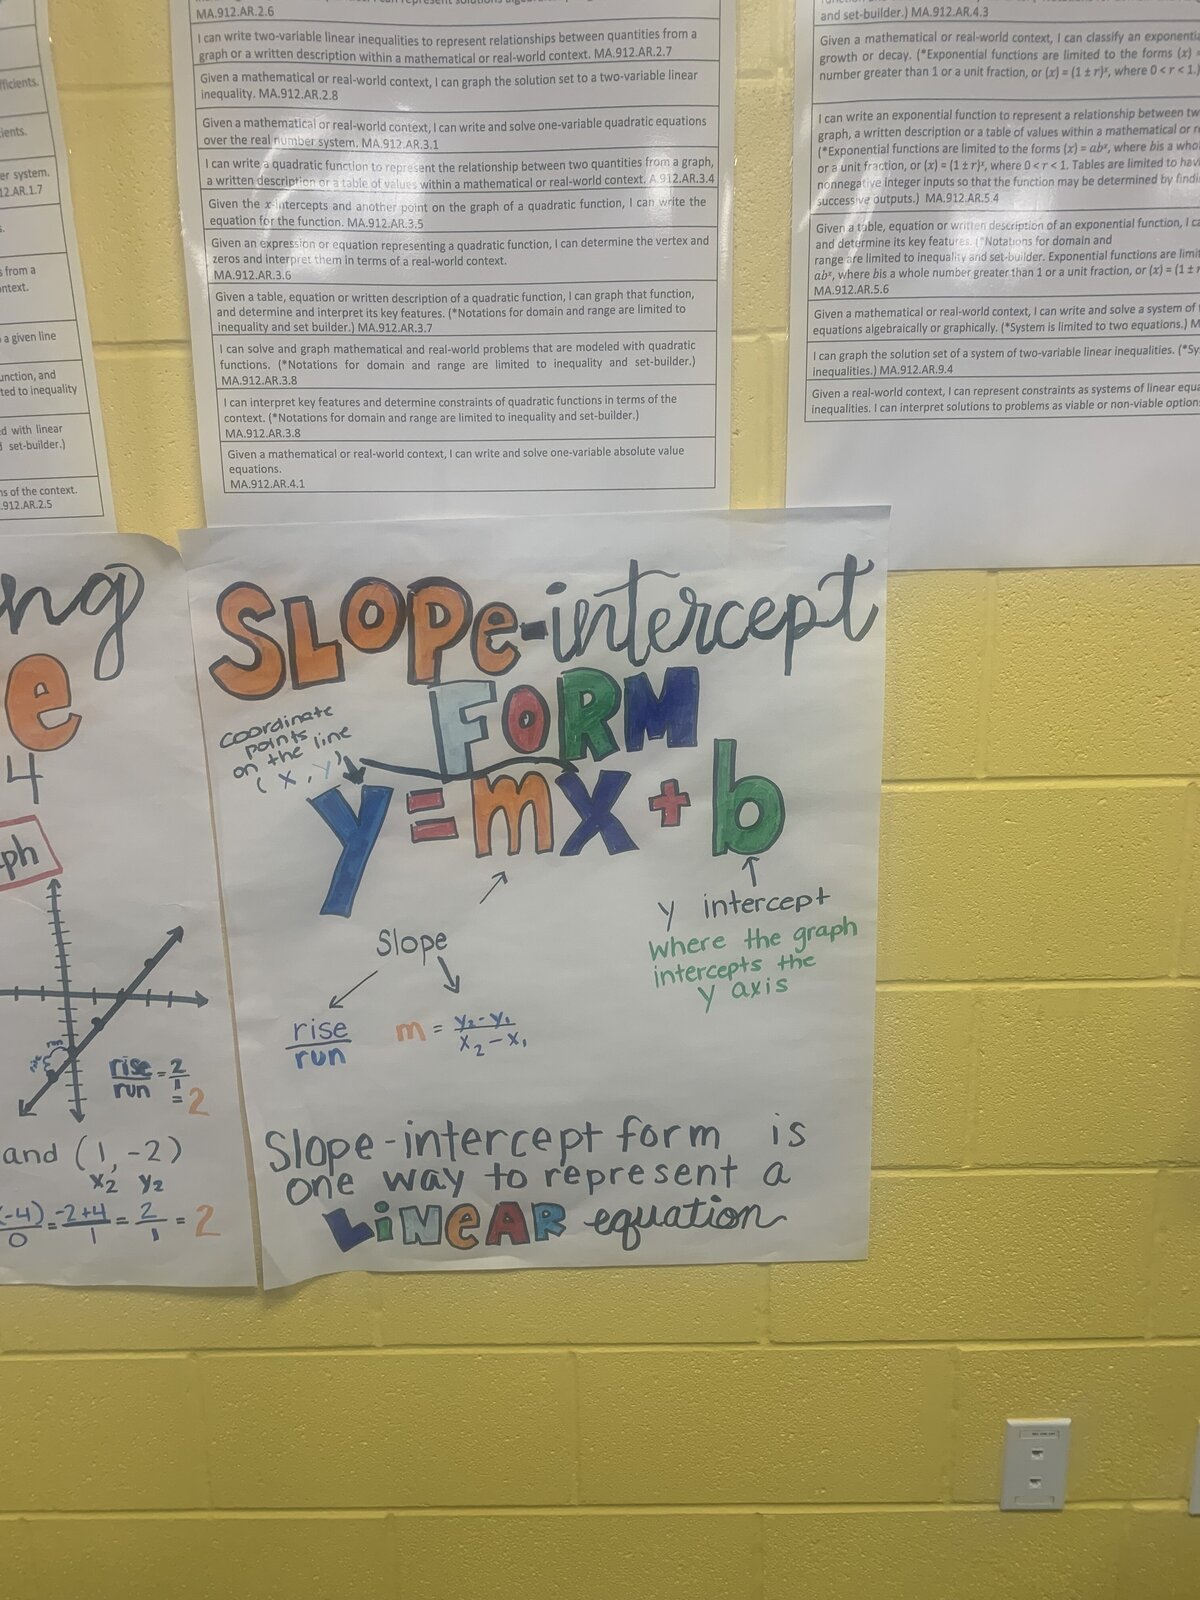 MA.912.AR.2.6
I can write two-variable linear inequalities to represent relationships between quantities from a
graph or a written description within a mathematical or real-world context. MA.912.AR.2.7
Given a mathematical or real-world context, I can graph the solution set to a two-variable linear
inequality. MA.912.AR.2.8
Given a mathematical or real-world context, I can write and solve one-variable quadratic equations
over the real number system. MA.912.AR.3.1
I can write a quadratic function to represent the relationship between two quantities from a graph,
a written description or a table of values within a mathematical or real-world context. A.912.AR.3.4
Given the x-intercepts and another point on the graph of a quadratic function, I can write the
equation for the function. MA.912.AR.3.5
Given an expression or equation representing a quadratic function, I can determine the vertex and
zeros and interpret them in terms of a real-world context.
MA.912.AR.3.6
Given a table, equation or written description of a quadratic function, I can graph that function,
and determine and interpret its key features. (*Notations for domain and range are limited to
inequality and set builder.) MA.912.AR.3.7
I can solve and graph mathematical and real-world problems that are modeled with quadratic
functions. (*Notations for domain and range are limited to inequality and set-builder.)
MA.912.AR.3.8
I can interpret key features and determine constraints of quadratic functions in terms of the
context. (*Notations for domain and range are limited to inequality and set-builder.)
MA.912.AR.3.8
Given a mathematical or real-world context, I can write and solve one-variable absolute value
equations.
MA.912.AR.4.1
and set-builder.) MA.912.AR.4.3
Given a mathematical or real-world context, I can classify an
growth or decay. (*Exponential functions are limited to the forms (x) =
number greater than 1 or a unit fraction, or (x) = (1 ± r)ˣ, where 0 < r < 1.)
I can write an exponential function to represent a relationship between
graph, a written description or a table of values within a mathematical or
(*Exponential functions are limited to the forms (x) = abˣ, where b is a
or a unit fraction, or (x) = (1 ± r)ˣ, where 0 < r < 1. Tables are limited to
nonnegative integer inputs so that the function may be determined by
successive outputs.) MA.912.AR.5.4
Given a table, equation or written description of an exponential function, I
and determine its key features. (*Notations for domain and
range are limited to inequality and set-builder. Exponential functions are
abˣ, where b is a whole number greater than 1 or a unit fraction, or (x) = (1 ±
MA.912.AR.5.6
Given a mathematical or real-world context, I can write and solve a system of
equations algebraically or graphically. (*System is limited to two equations.)
I can graph the solution set of a system of two-variable linear inequalities.
inequalities.) MA.912.AR.9.4
Given a real-world context, I can represent constraints as systems of linear
inequalities. I can interpret solutions to problems as viable or non-viable
er system.
12.AR.1.7
s from a
ntext.
a given line
unction, and
ted to inequality
d with linear
set-builder.)
ns of the context.
.912.AR.2.5
SLOPe-intercept
FORM
coordinate
points
on the line
(x, y)
y = mx + b
Slope
rise
run
m = y₂-y₁
x₂-x₁
y intercept
where the graph
intercepts the
y axis
Slope-intercept form is
one way to represent a
LiNeAR equation
ng
e
4
ph
rise = 2
run 1
= 2
and (1, -2)
x₂ y₂
(-4) = -2+4 = 2 = 2
0 1 1